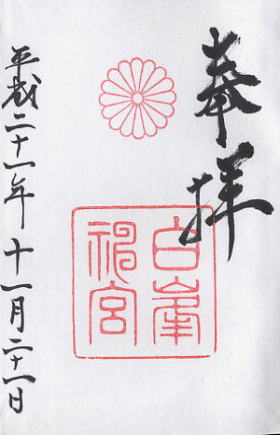 奉拝
白峯
神宮
平成二十一年十一月二十一日